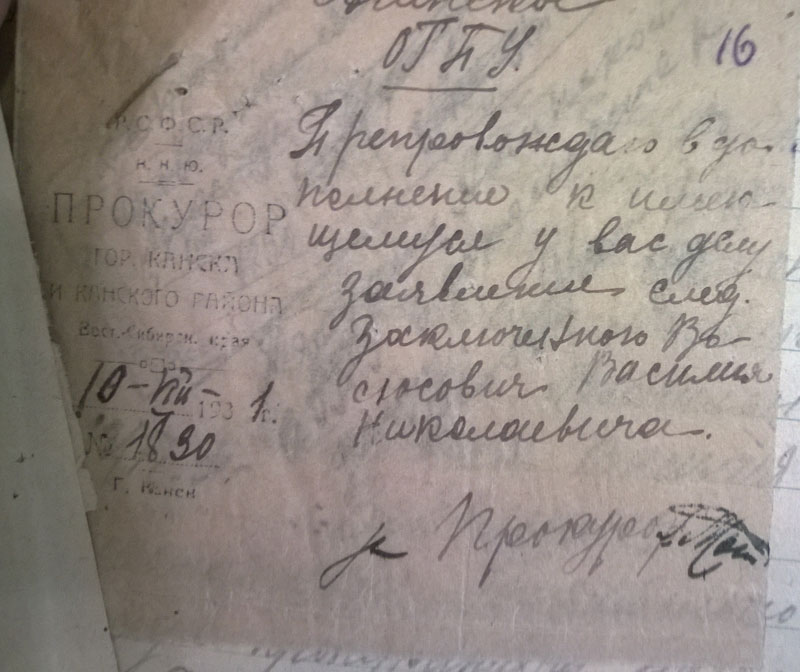 ОГПУ.
16
Р.С.Ф.С.Р.
Н. К. Ю.
ПРОКУРОР
ГОР. КАНСКА
И КАНСКОГО РАЙОНА
Вост.-Сибирск. края
10-VIII-1931г.
№ 1830
Г. Канск
Препровождаю в до-
полнение к имею-
щемуся у вас делу
заявление след.
заключенного Ва-
сюсович Василия
Николаевича.
Прокурор